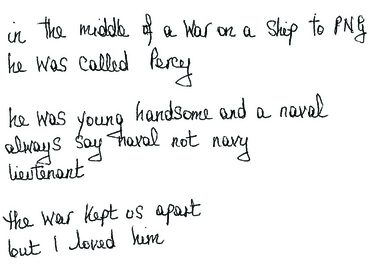 in the middle of a war on a ship to PNG
he was called Percy
he was young handsome and a naval
always say naval not navy
lieutenant
the war kept us apart
but I loved him